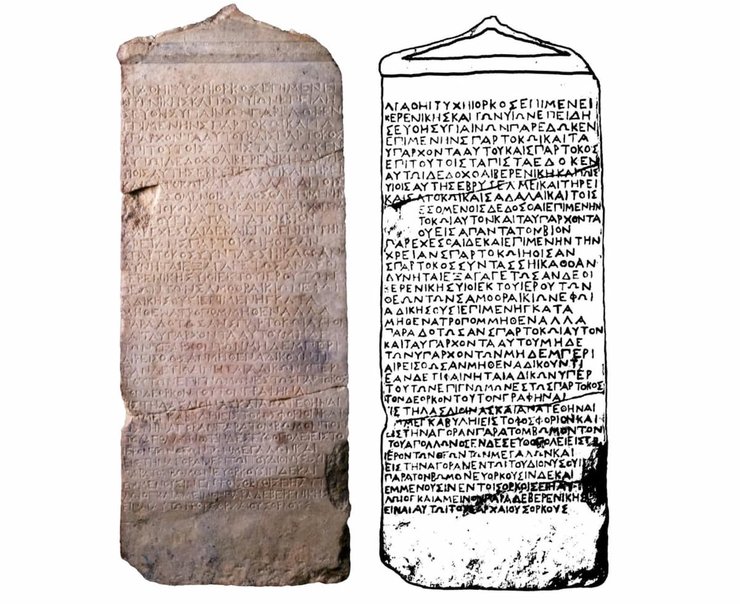 ΑΓΑΘΗΙΤΥΧΗΙΟΡΚΟΣΕΠΙΜΕΝΕΙ
ΒΕΡΕΝΙΚΗΣΚΑΙΤΩΝΥΙΩΝΕΠΕΙΔΗ
ΣΕΥΘΗΣΥΓΙΑΙΝΩΝΠΑΡΕΔΩΚΕΝ
ΕΠΙΜΕΝΗΝΣΠΑΡΤΟΚΩΙΚΑΙΤΑ
ΥΠΑΡΧΟΝΤΑΑΥΤΟΥΚΑΙΣΠΑΡΤΟΚΟΣ
ΕΠΙΤΟΥΤΟΙΣΤΑΠΙΣΤΑΕΔΟΚΕΝ
ΑΥΤΩΙΔΕΔΟΧΘΑΙΒΕΡΕΝΙΚΗΚΑΙΤΟΙΣ
ΥΙΟΙΣΑΥΤΗΣΕΒΡΥΖΕΛΜΕΙΚΑΙΤΗΡΕΙ
ΚΑΙΣΑΤΟΚΩΙΚΑΙΣΑΔΑΛΑΙΚΑΙΤΟΙΣ
ΕΣΟΜΕΝΟΙΣΔΕΔΟΣΘΑΙΕΠΙΜΕΝΗΝ
ΤΟΚΩΙΑΥΤΟΝΚΑΙΤΑΥΠΑΡΧΟΝΤΑ
ΟΥΕΙΣΑΠΑΝΤΑΤΟΝΒΙΟΝ
ΠΑΡΕΧΕΣΘΑΙΔΕΚΑΙΕΠΙΜΕΝΗΝΤΗΝ
ΧΡΕΙΑΝΣΠΑΡΤΟΚΩΙΗΟΙΣΑΝ
ΣΠΑΡΤΟΚΟΣΣΥΝΤΑΣΣΗΙΚΑΘΟΑΝ
ΔΥΝΗΤΑΙΕΞΑΓΑΓΕΤΩΣΑΝΔΕΟΙ
ΒΕΡΕΝΙΚΗΣΥΙΟΙΕΚΤΟΥΙΕΡΟΥΤΩΝ
ΘΕΩΝΤΩΝΣΑΜΟΘΡΑΙΚΙΩΝΕΦΩΙ
ΑΔΙΚΗΣΟΥΣΙΕΠΙΜΕΝΗΓΚΑΤΑ
ΜΗΘΕΝΑΤΡΟΠΟΜΜΗΘΕΝΑΛΛΑ
ΠΑΡΑΔΟΤΩΣΑΝΣΠΑΡΤΟΚΩΙΑΥΤΟΝ
ΚΑΙΤΑΥΠΑΡΧΟΝΤΑΑΥΤΟΥΜΗΔΕ
ΤΩΝΥΠΑΡΧΟΝΤΩΝΜΗΔΕΜΠΕΡΙ
ΑΙΡΕΙΣΘΩΣΑΝΜΗΘΕΝΑΔΙΚΟΥΝΤΙ
ΕΑΝΔΕΤΙΦΑΙΝΗΤΑΙΑΔΙΚΩΝΥΠΕΡ
ΤΟΥΤΩΝΕΠΙΓΝΩΜΩΝΕΣΤΩΣΠΑΡΤΟΚΟΣ
ΤΟΝΔΕΟΡΚΟΝΤΟΥΤΟΝΓΡΑΦΗΝΑΙ
ΕΙΣΤΗΛΑΣΔΙΘΙΝΑΣΚΑΙΑΝΑΤΕΘΗΝΑΙ
ΕΜΜΕΓΚΑΒΥΛΗΙΕΙΣΤΟΦΩΣΦΟΡΙΟΝΚΑΙ
ΕΙΣΤΗΝΑΓΟΡΑΝΠΑΡΑΤΟΜΒΩΜΟΝΤΟΝ
ΤΟΥΑΠΟΛΛΩΝΟΣΕΝΔΕΣΕΥΘΟΠΟΛΕΙΕΙΣΤΟ
ΙΕΡΟΝΤΩΝΘΕΩΝΤΩΜΜΕΓΑΛΩΝΚΑΙ
ΕΙΣΤΗΝΑΓΟΡΑΝΕΝΤΩΙΤΟΥΔΙΟΝΥΣΟΥΙΕΡΩΙ
ΠΑΡΑΤΟΝΒΩΜΟΝΕΥΟΡΚΟΥΣΙΝΔΕΚΑΙ
ΕΜΜΕΝΟΥΣΙΝΕΝΤΟΙΣΟΡΚΟΙΣΕΙΗ
ΛΩΙΟΓΚΑΙΑΜΕΙΝΟΥΠΑΡΑΔΕΒΕΡΕΝΙΚΗΣ
ΕΙΝΑΙΑΥΤΩΙΤΟΥΣΑΡΧΑΙΟΥΣΟΡΚΟΥΣ